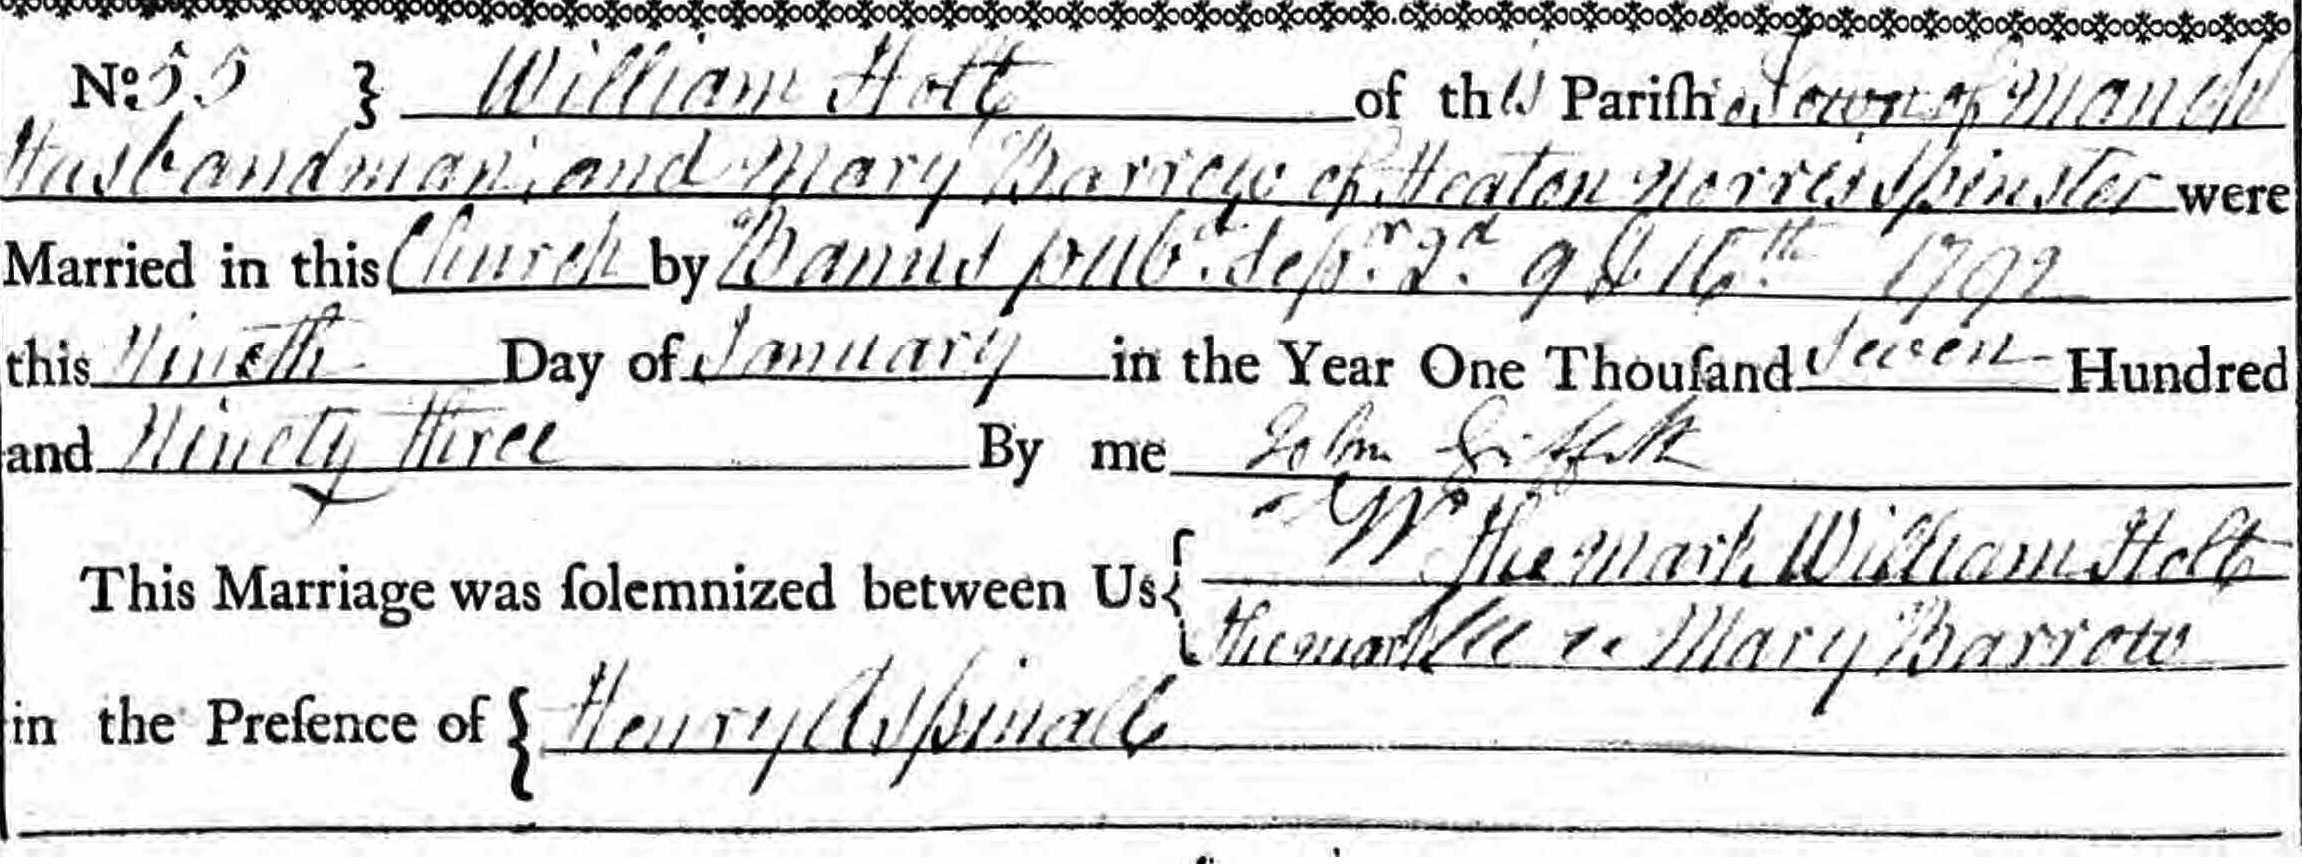 No: 55 } William Holt of this Pariſh & Town of Manchr
Husbandman, and Mary Barrow of Heaton Norris Spinster were
Married in this Church by Banns pubd. Sepr. 2d. 9 & 16th 1792
this Nineth Day of January in the Year One Thouſand Seven Hundred
and Ninety three By me John Griffith
This Marriage was ſolemnized between Us { The mark William Holt
The mark Mary Barrow
in the Preſence of { Henry Aspinall